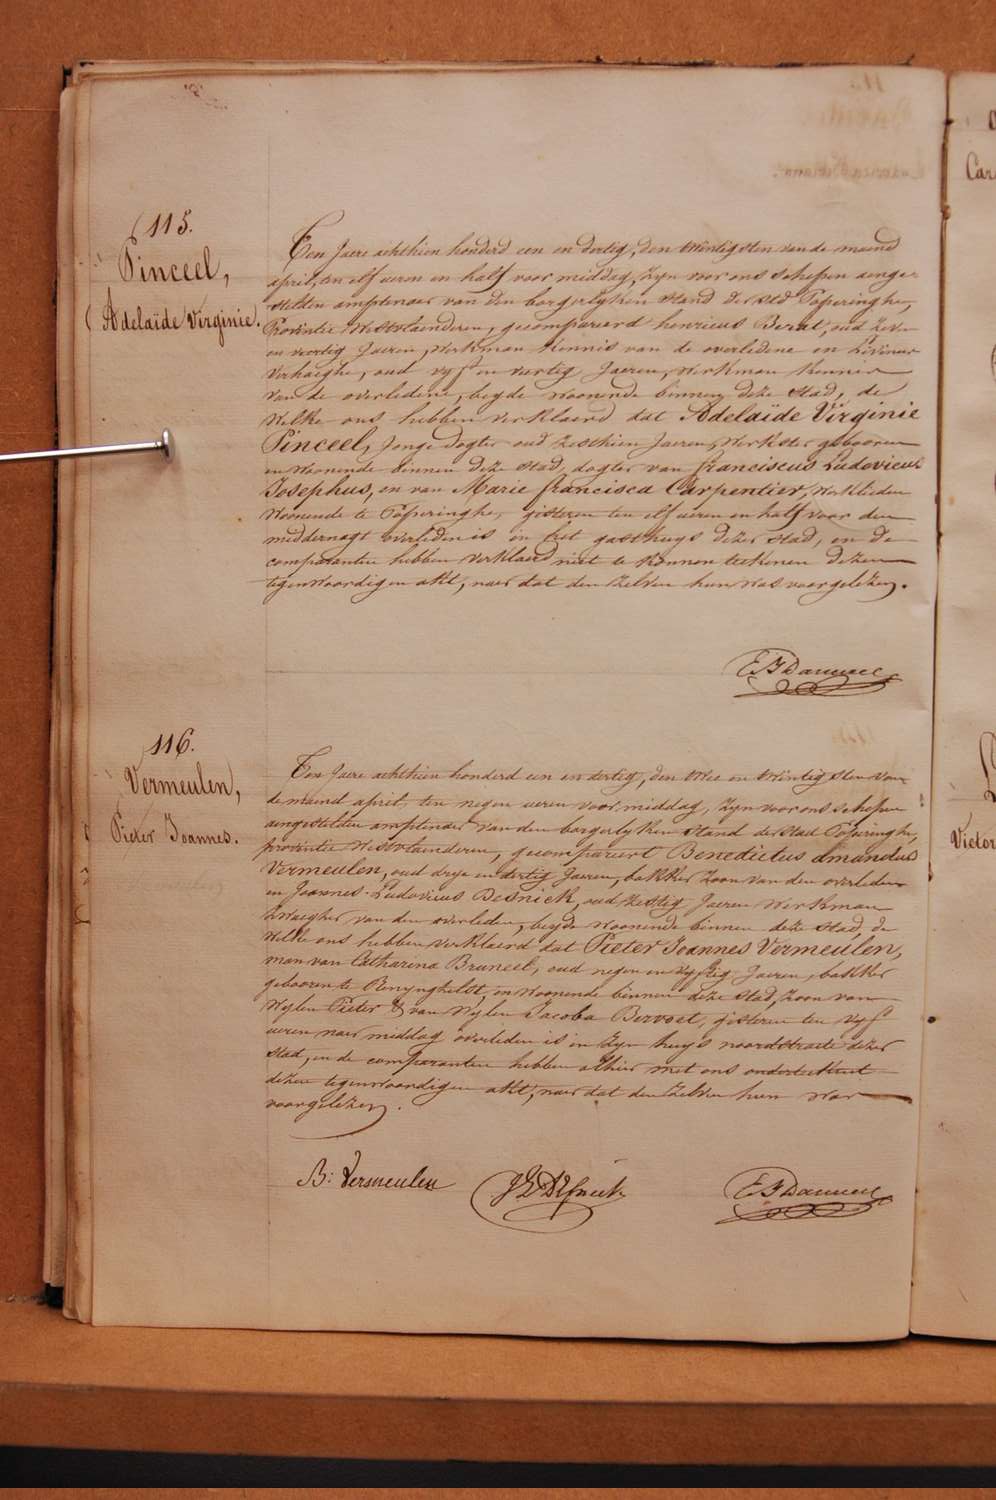 115.
Pinceel,
Adelaïde Virginie.
Ten Jaere achthien honderd een en dertig, den twintigsten van de maend
april, ten elf ueren en half voor middag, zyn voor ons schepen aenge-
stelden amptenaer van den borgerlyken stand der stad Poperinghe,
Provintie Westvlaenderen, gecompareerd henricus Berat, oud zeven
en veertig Jaeren, werkman kennis van de overledene en Livinus
Verhaeghe, oud vyf en veertig Jaeren, werkman kennis
van de overledene, beyde woonende binnen deze stad, de
welke ons hebben verklaerd dat Adelaïde Virginie
Pinceel, Jonge dogter oud zesthien Jaeren, werkster gebooren
en woonende binnen deze stad, dogter van franciscus Ludovicus
Josephus, en van Marie francisca Carpentier, werklieden
woonende te Poperinghe, gisteren ten elf ueren en half voor den
middernagt overleden is in het gasthuys dezer stad, en de
comparanten hebben verklaerd niet te konnen teekenen dezen
tegenwoordigen akt, naer dat den zelven hun was voorgelezen.
116.
Vermeulen,
Pieter Joannes.
Ten Jaere achthien honderd een en dertig, den twee en twintigsten van
de maend april, ten negen ueren voor middag, zyn voor ons schepen
aengestelden amptenaer van den borgerlyken stand der stad Poperinghe,
provintie Westvlaenderen, gecompareert Benedictus Amandus
Vermeulen, oud drye en dertig Jaeren, bakker zoon van den overleden
en Joannes Ludovicus Desnick, oud zestig Jaeren werkman
zwaegher van den overleden, beyde woonende binnen deze stad, de
welke ons hebben verklaerd dat Pieter Joannes Vermeulen,
man van Catharina Bruneel, oud negen en vyftig Jaeren, bakker
gebooren te Renynghelst, en woonende binnen deze stad, zoon van
wylen Pieter & van wylen Jacoba Bervoet, gisteren ten vyf
ueren naer middag overleden is in zyn huys noordstraete dezer
stad, en de comparanten hebben alhier met ons onderteekent
dezen tegenwoordigen akt, naer dat den zelven hun was
voorgelezen.
B: Vermeulen
Victor